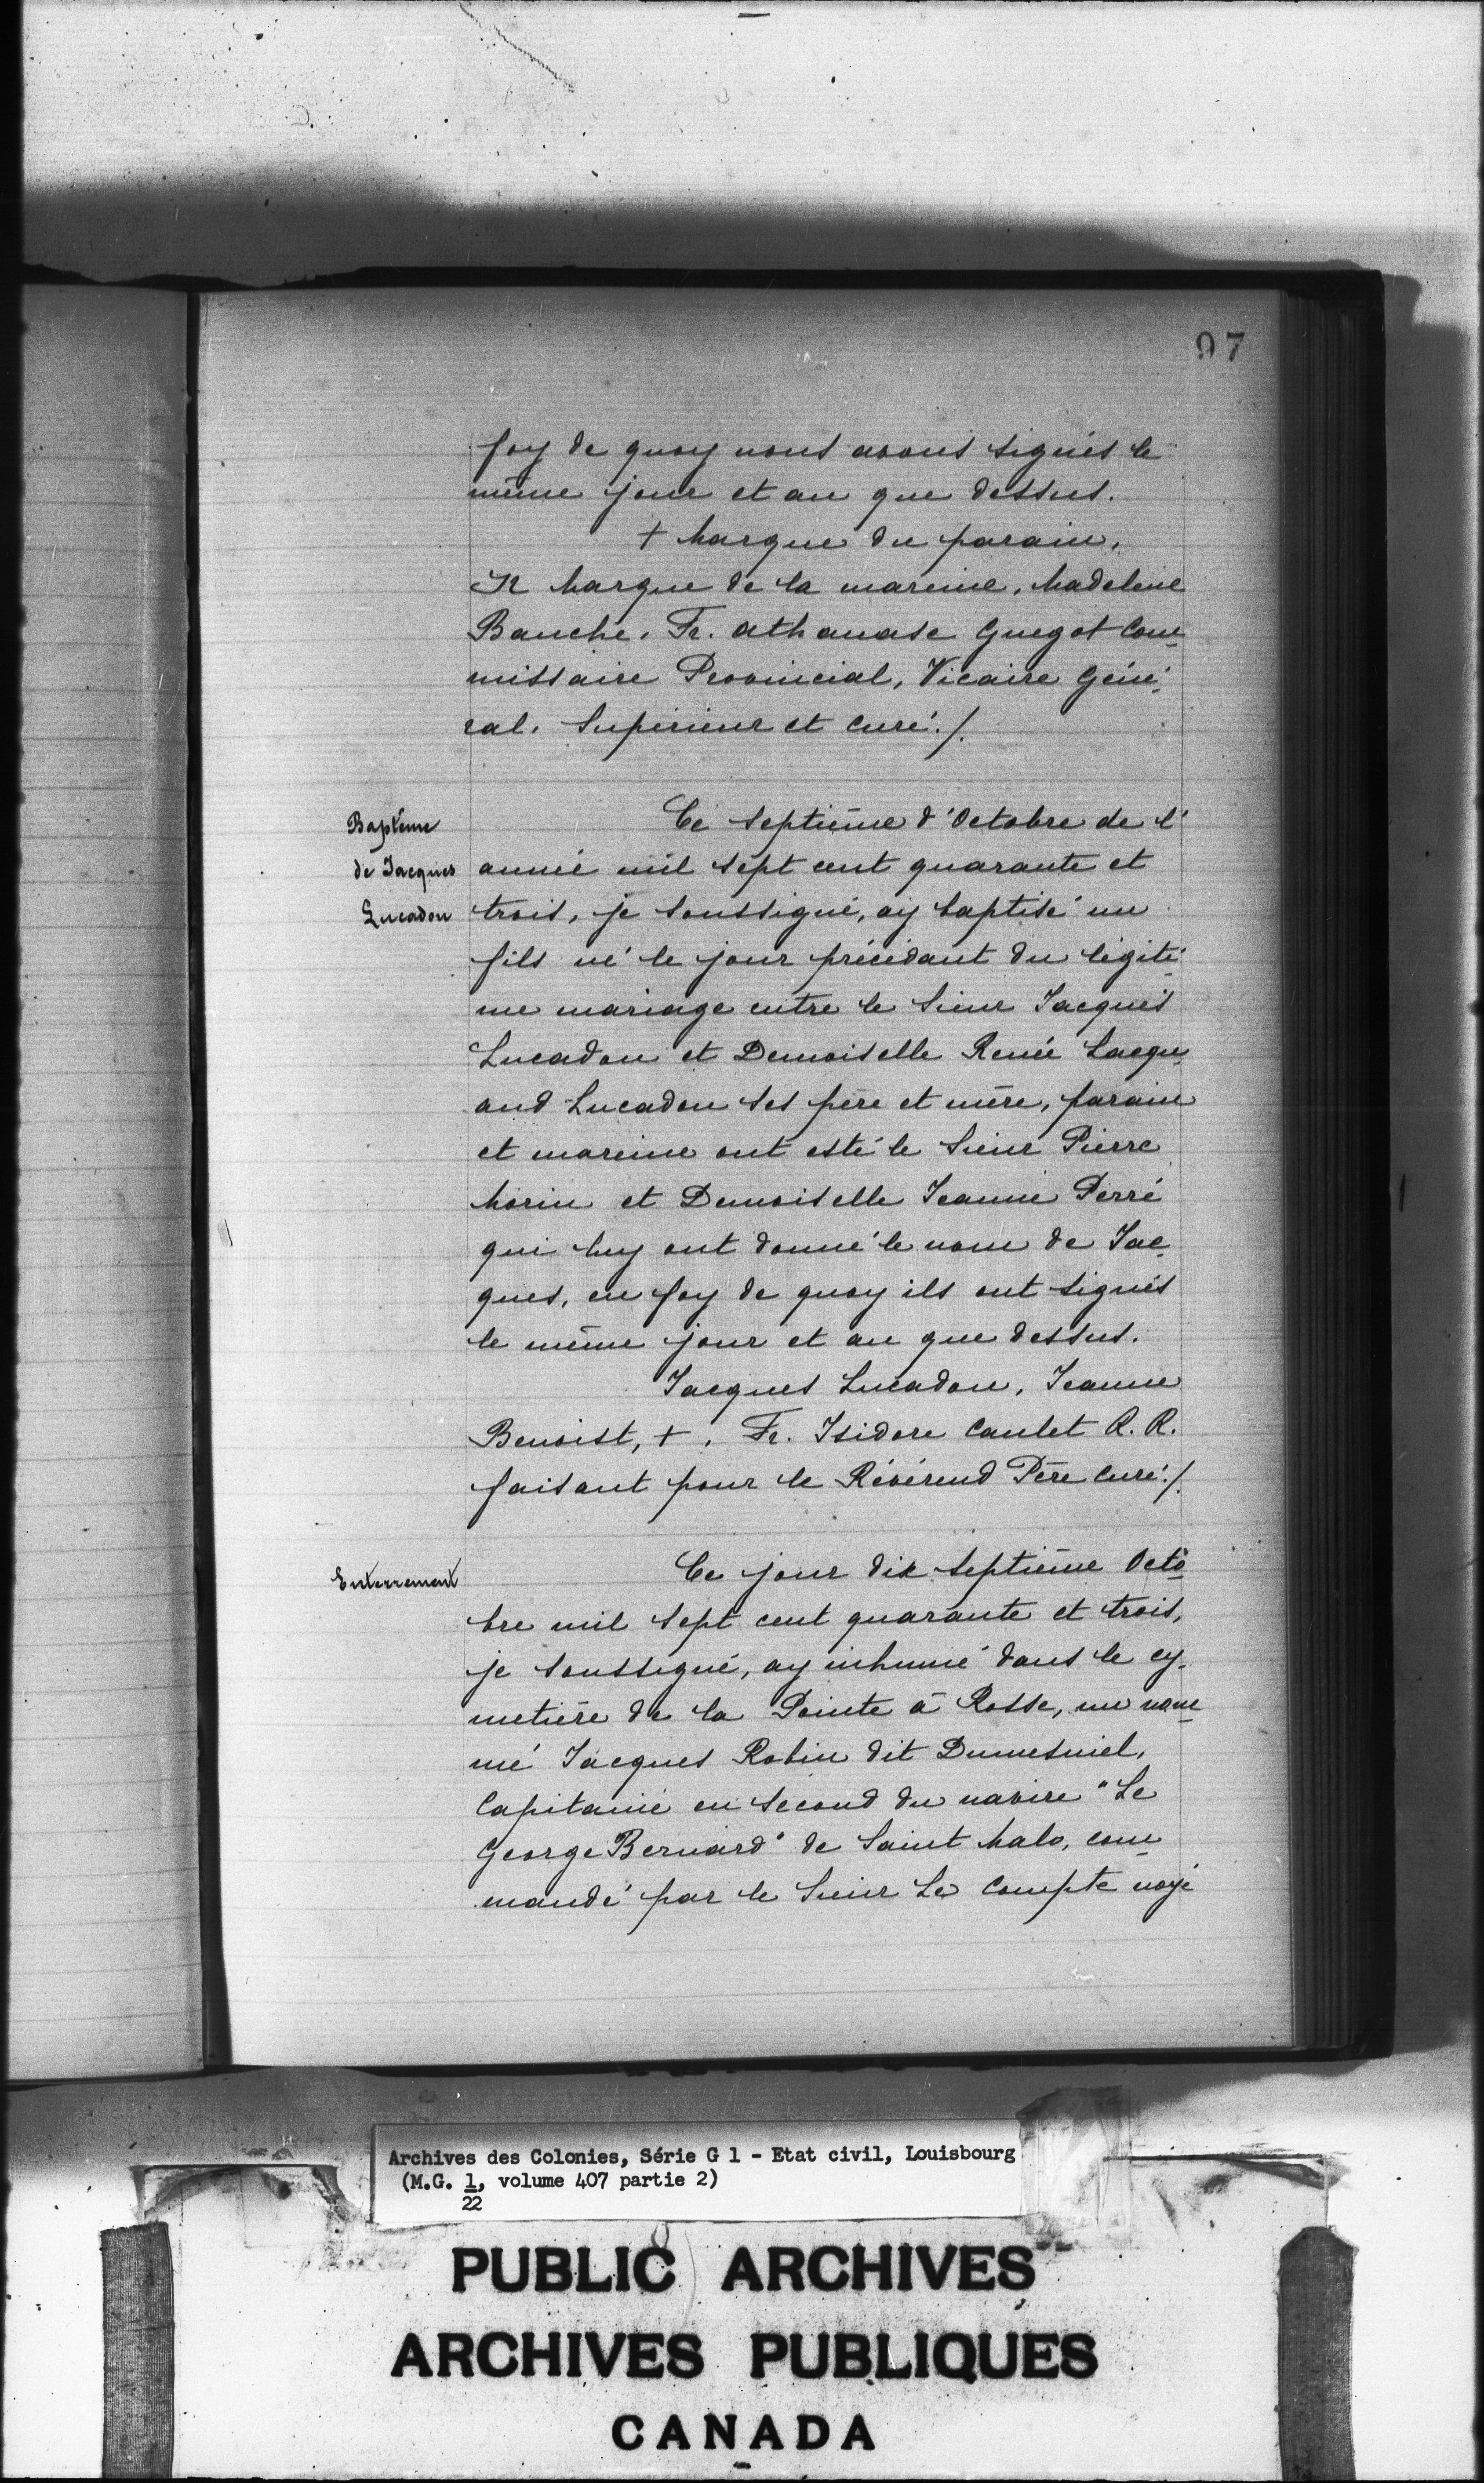 97
foy de quoy nous avons signés le
même jour et an que dessus.
+ Marque du parain,
Marque de la mareine, Madeleine
Bauche. Fr. Athanase Guegot Com-
missaire Provincial, Vicaire Géné-
ral. Supérieur et curé./.
Baptême
de Jacques
Lucadou
Ce septième d'Octobre de l'
année mil sept cent quarante et
trois, je soussigné, ay baptisé un
fils né le jour précédant du légiti-
me mariage entre le Sieur Jacques
Lucadou et Demoiselle Renée Lacqu-
and Lucadou ses père et mère, parain
et mareine ont esté le Sieur Pierre
Morin et Demoiselle Jeanne Perré
qui luy ont donné le nom de Jac-
ques, en foy de quoy ils ont signés
le même jour et an que dessus.
Jacques Lucadou, Jeanne
Benoist, +. Fr. Isidore Caulet R. R.
faisant pour le Révérend Père curé./.
Enterrement
Ce jour dix septième Octo-
bre mil sept cent quarante et trois,
je soussigné, ay inhumé dans le cy-
metière de la Pointe à Rosse, un nom-
mé Jacques Robin dit Dumesniel,
Capitaine en second du navire "Le
George Bernard" de Saint Malo, com-
mandé par le Sieur Le Compte noyé
Archives des Colonies, Série G 1 - Etat civil, Louisbourg
(M.G. 1, volume 407 partie 2)
22
PUBLIC ARCHIVES
ARCHIVES PUBLIQUES
CANADA